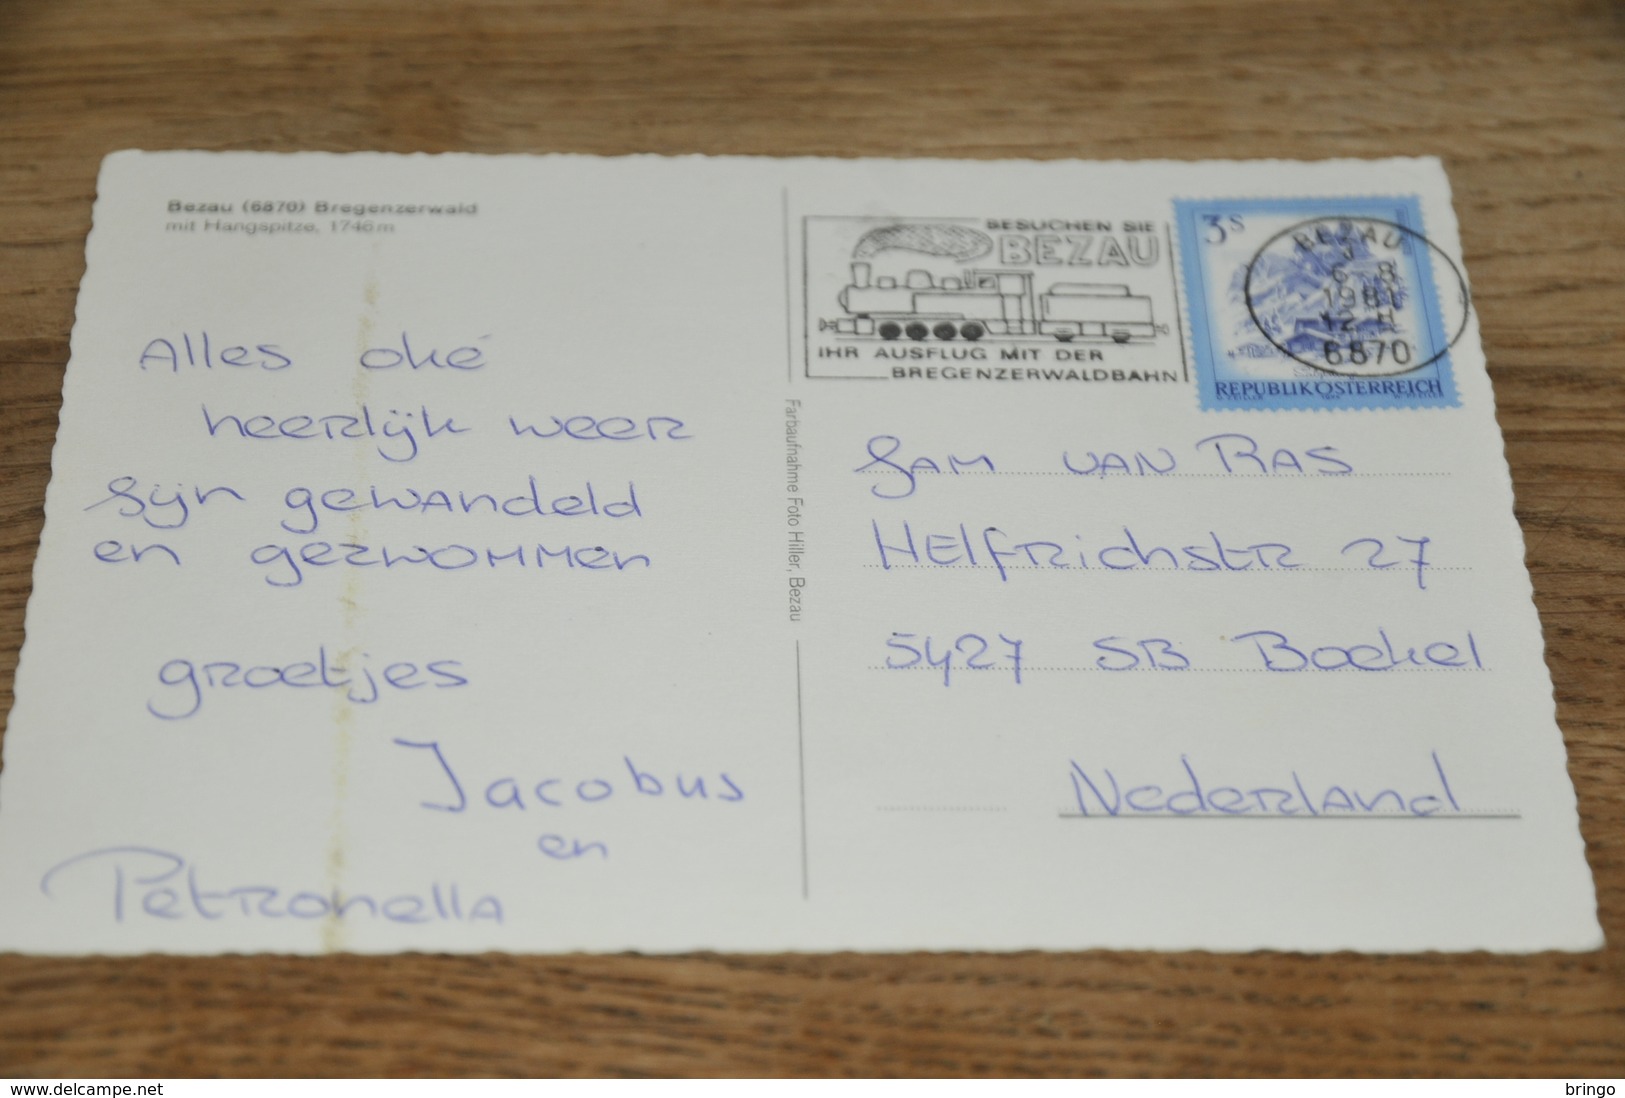 Bezau (6870) Bregenzerwald
mit Hangspitze, 1746m
Alles oké
heerlijk weer
Zijn gewandeld
en gezwommen
groetjes
Jacobus
en
Petronella
Farbaufnahme Foto Hiller, Bezau
BESUCHEN SIE
BEZAU
IHR AUSFLUG MIT DER
BREGENZERWALDBAHN
3S
REPUBLIK ÖSTERREICH
BEZAU
6 8
1981
12 H
6870
Fam van Ras
Helfrichstr 27
5427 SB Boekel
Nederland
www.delcampe.net
bringo